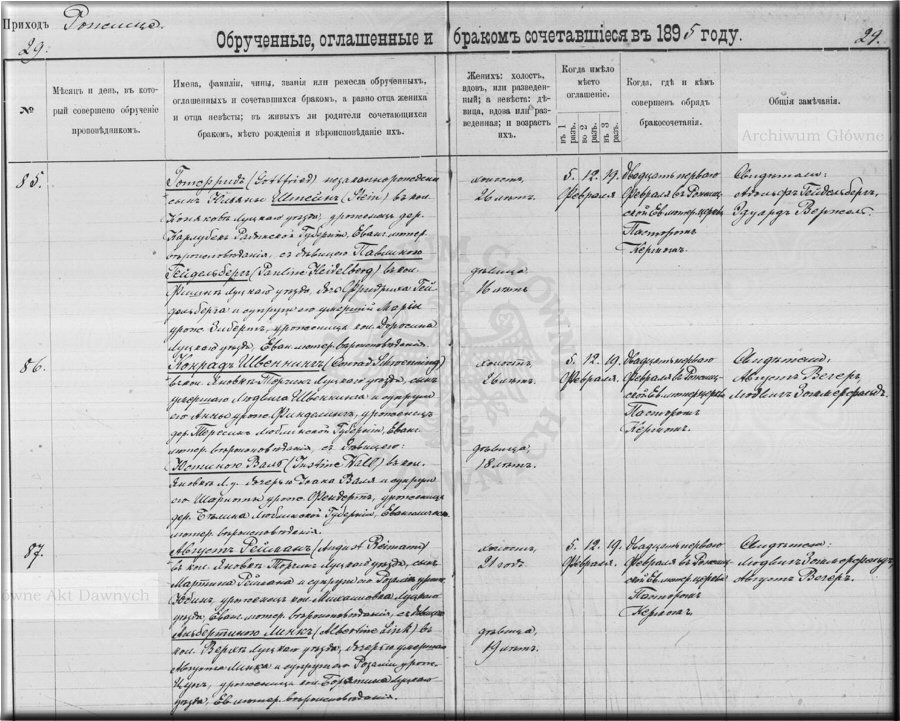 Приходъ Рожище.
29.
Обрученные, оглашенные и бракомъ сочетавшіеся въ 1895 году.
29.
№
Мѣсяцъ и день, въ который совершено обрученіе проповѣдникомъ.
Имена, фамиліи, чины, званія или ремесла обрученныхъ,
оглашенныхъ и сочетавшихся бракомъ, а равно отца жениха
и отца невѣсты; въ живыхъ ли родители сочетающихся
бракомъ, мѣсто рожденія и вѣроисповѣданіе ихъ.
Женихъ: холостъ,
вдовъ, или разведенный;
а невѣста: дѣвица,
вдова или разведенная;
и возрастъ
ихъ.
Когда имѣло
мѣсто
оглашеніе.
въ 1 разъ.
во 2 разъ.
въ 3 разъ.
Когда, гдѣ и кѣмъ
совершенъ обрядъ
бракосочетанія.
Общія замѣчанія.
Archiwum Główne
85.
Готфридъ (Gottfried) незаконнорожденный
сынъ Юліаны Штейнъ (Stein) въ кол.
Луцкаго уѣзда, уроженецъ дер.
Губерніи, Еван. лютер.
вѣроисповѣданія, съ дѣвицею Павлиною
Гейдельбергъ (Pauline Heidelberg) въ кол.
Луцкаго уѣзда, дочь Фридриха Гейдельберга
и супруги его умершей Маріи
урож. Зибертъ, уроженица кол. Доросина
Луцкаго уѣзда, Еван. лютер. вѣроисповѣданія.
холостъ,
26 лѣтъ.
дѣвица
16 лѣтъ
5. 12. 19.
Февраля
Двадцать перваго
Февраля въ Рожищской
Ев. лютер. церкви
Пасторомъ
Керномъ.
Свидѣтели:
Адольфъ Гейдельбергъ,
Эдуардъ
86.
Конрадъ Швеннингъ (Conrad Schwenning)
въ кол. Яновкѣ Торчин. Луцкаго уѣзда, сынъ
умершаго Людвига Швеннинга и супруги
его урож. уроженецъ
дер. Люблинской Губерніи, Еван.
лютер. вѣроисповѣданія, съ дѣвицею
Юстиною Валь (Justine Wall) въ кол.
Яновкѣ Л. у. дочерью Исака Валя и супруги
его урож. уроженица
дер. Люблинской Губерніи, Евангелическо
лютер. вѣроисповѣданія.
холостъ,
26 лѣтъ.
дѣвица,
18 лѣтъ.
5. 12. 19.
Февраля.
Двадцать перваго
Февраля въ Рожищской
Ев. лютер. церкви
Пасторомъ
Керномъ.
Свидѣтели:
Августъ Вегеръ,
Людвигъ Зоммерфельдъ.
87.
Августъ Рейманъ (August Reimann)
въ кол. Яновкѣ Торчин. Луцкаго уѣзда, сынъ
Мартина Реймана и супруги его Розаліи урож.
уроженецъ кол. Михайловка Луцкаго
уѣзда, Еван. лютер. вѣроисповѣданія, съ дѣвицею
Альбертиною Линкъ (Albertine Link) въ
кол. Луцкаго уѣзда, дочерью умершаго
Августа Линка и супруги его Розаліи урож.
уроженица кол. Луцкаго
уѣзда, Ев. лютер. вѣроисповѣданія.
холостъ,
21 годъ.
дѣвица,
19 лѣтъ.
5. 12. 19.
Февраля.
Двадцать перваго
Февраля въ Рожищской
Ев. лютер. церкви
Пасторомъ
Керномъ.
Свидѣтели:
Людвигъ Зоммерфельдъ,
Августъ Вегеръ.
ówne Akt Dawnych